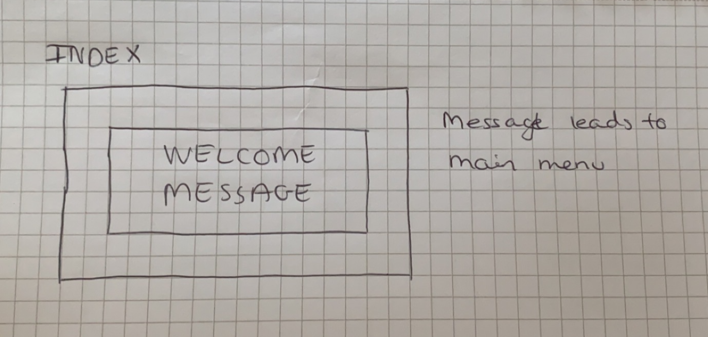 INDEX
WELCOME
MESSAGE
Message leads to
main menu